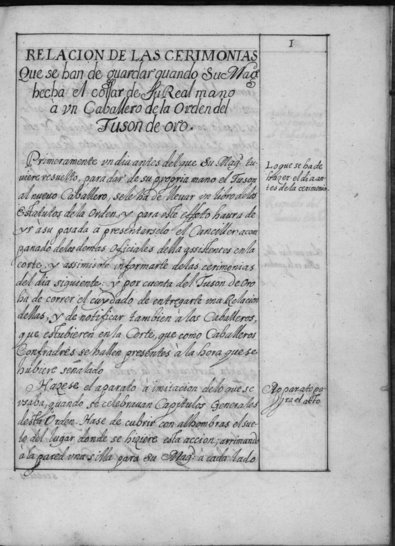 1
RELACION DE LAS CERIMONIAS
Que se han de guardar quando Su Magd
hecha el collar de Su Real mano
a vn Caballero de la Orden del
Tuson de oro.
Primeramente vn dia antes del que Su Magd tu-
viere resuelto, para dar de su propria mano el Tuson
al nuevo Caballero, se le ha de llevar vn libro de los
estatutos de la Orden, y para este effeto haura de
yr a su posada a presentarselo el Canceller acom
panado de los demas Officiales della assistentes en la
corte, y assimismo informarle de las cerimonias
del dia siguiente; y por cuenta del Tuson de Oro
ha de correr el cuydado de entregarle vna Relacion
dellas, y de notificar tambien a los Caballeros,
que estubieren en la Corte, que como Caballeros
Confradres se hallen presentes à la hora que se
hubiere señalado
Lo que se ha de
hazer el dia an
tes de la cerimonia
Hazese el aparato a imitacion de lo que se
vsaba, quando se celebrauan Capitulos Generales
desta Orden. Hase de cubrir con alhombras el sue-
lo del lugar donde se hiziere esta accion, arrimando
a la pared vna silla para Su Magd a cada lado
Aparato pa
ra el acto